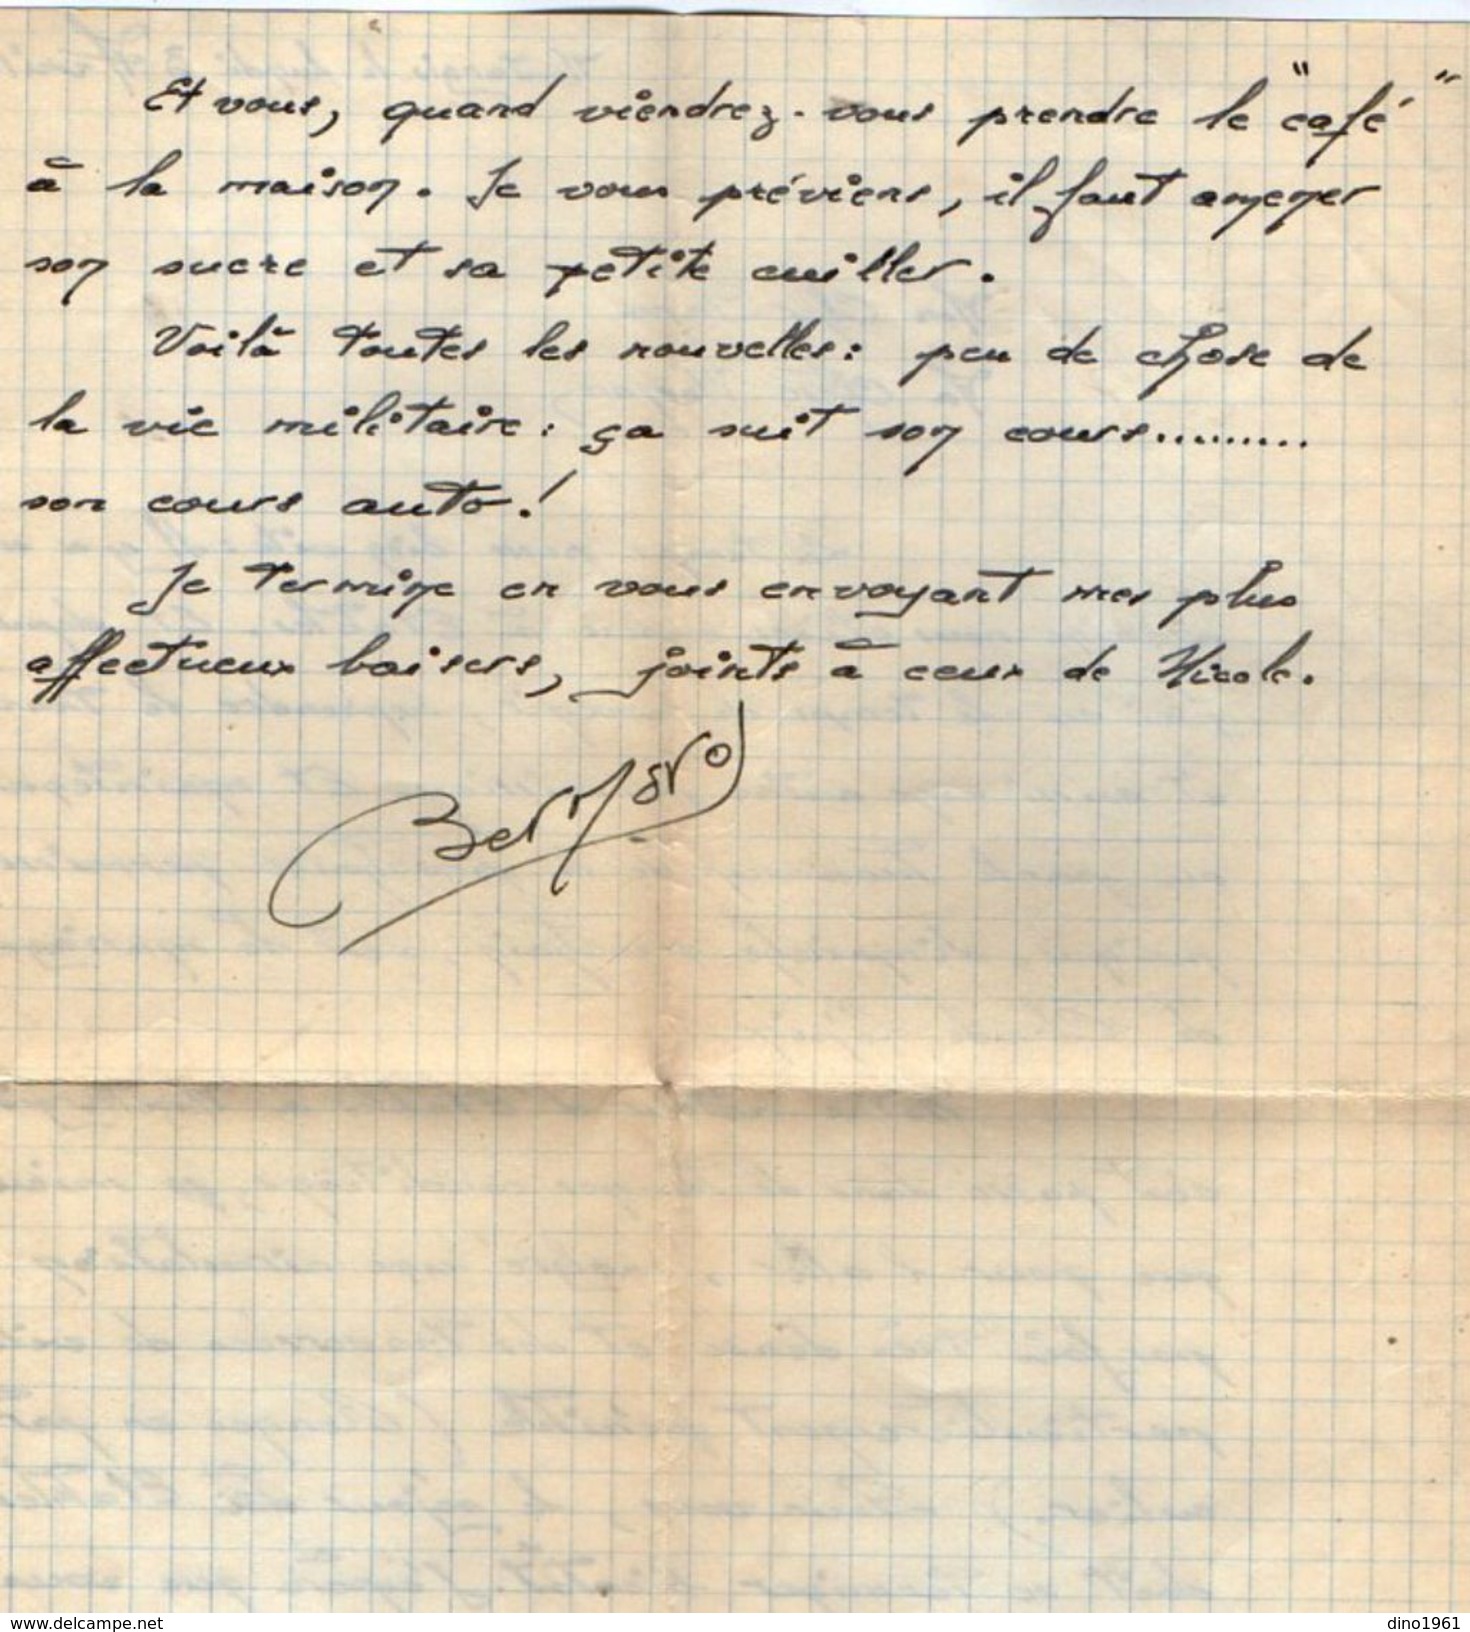 Et vous, quand viendrez-vous prendre le "café"
à la maison. Je vous préviens, il faut amener
son sucre et sa petite cuiller.
Voilà toutes les nouvelles : peu de chose de
la vie militaire : ça suit son cours.........
son cours auto !
Je termine en vous envoyant mes plus
affectueux baisers, joints à ceux de Nicole.
Bernard
www.delcampe.net
dino1961